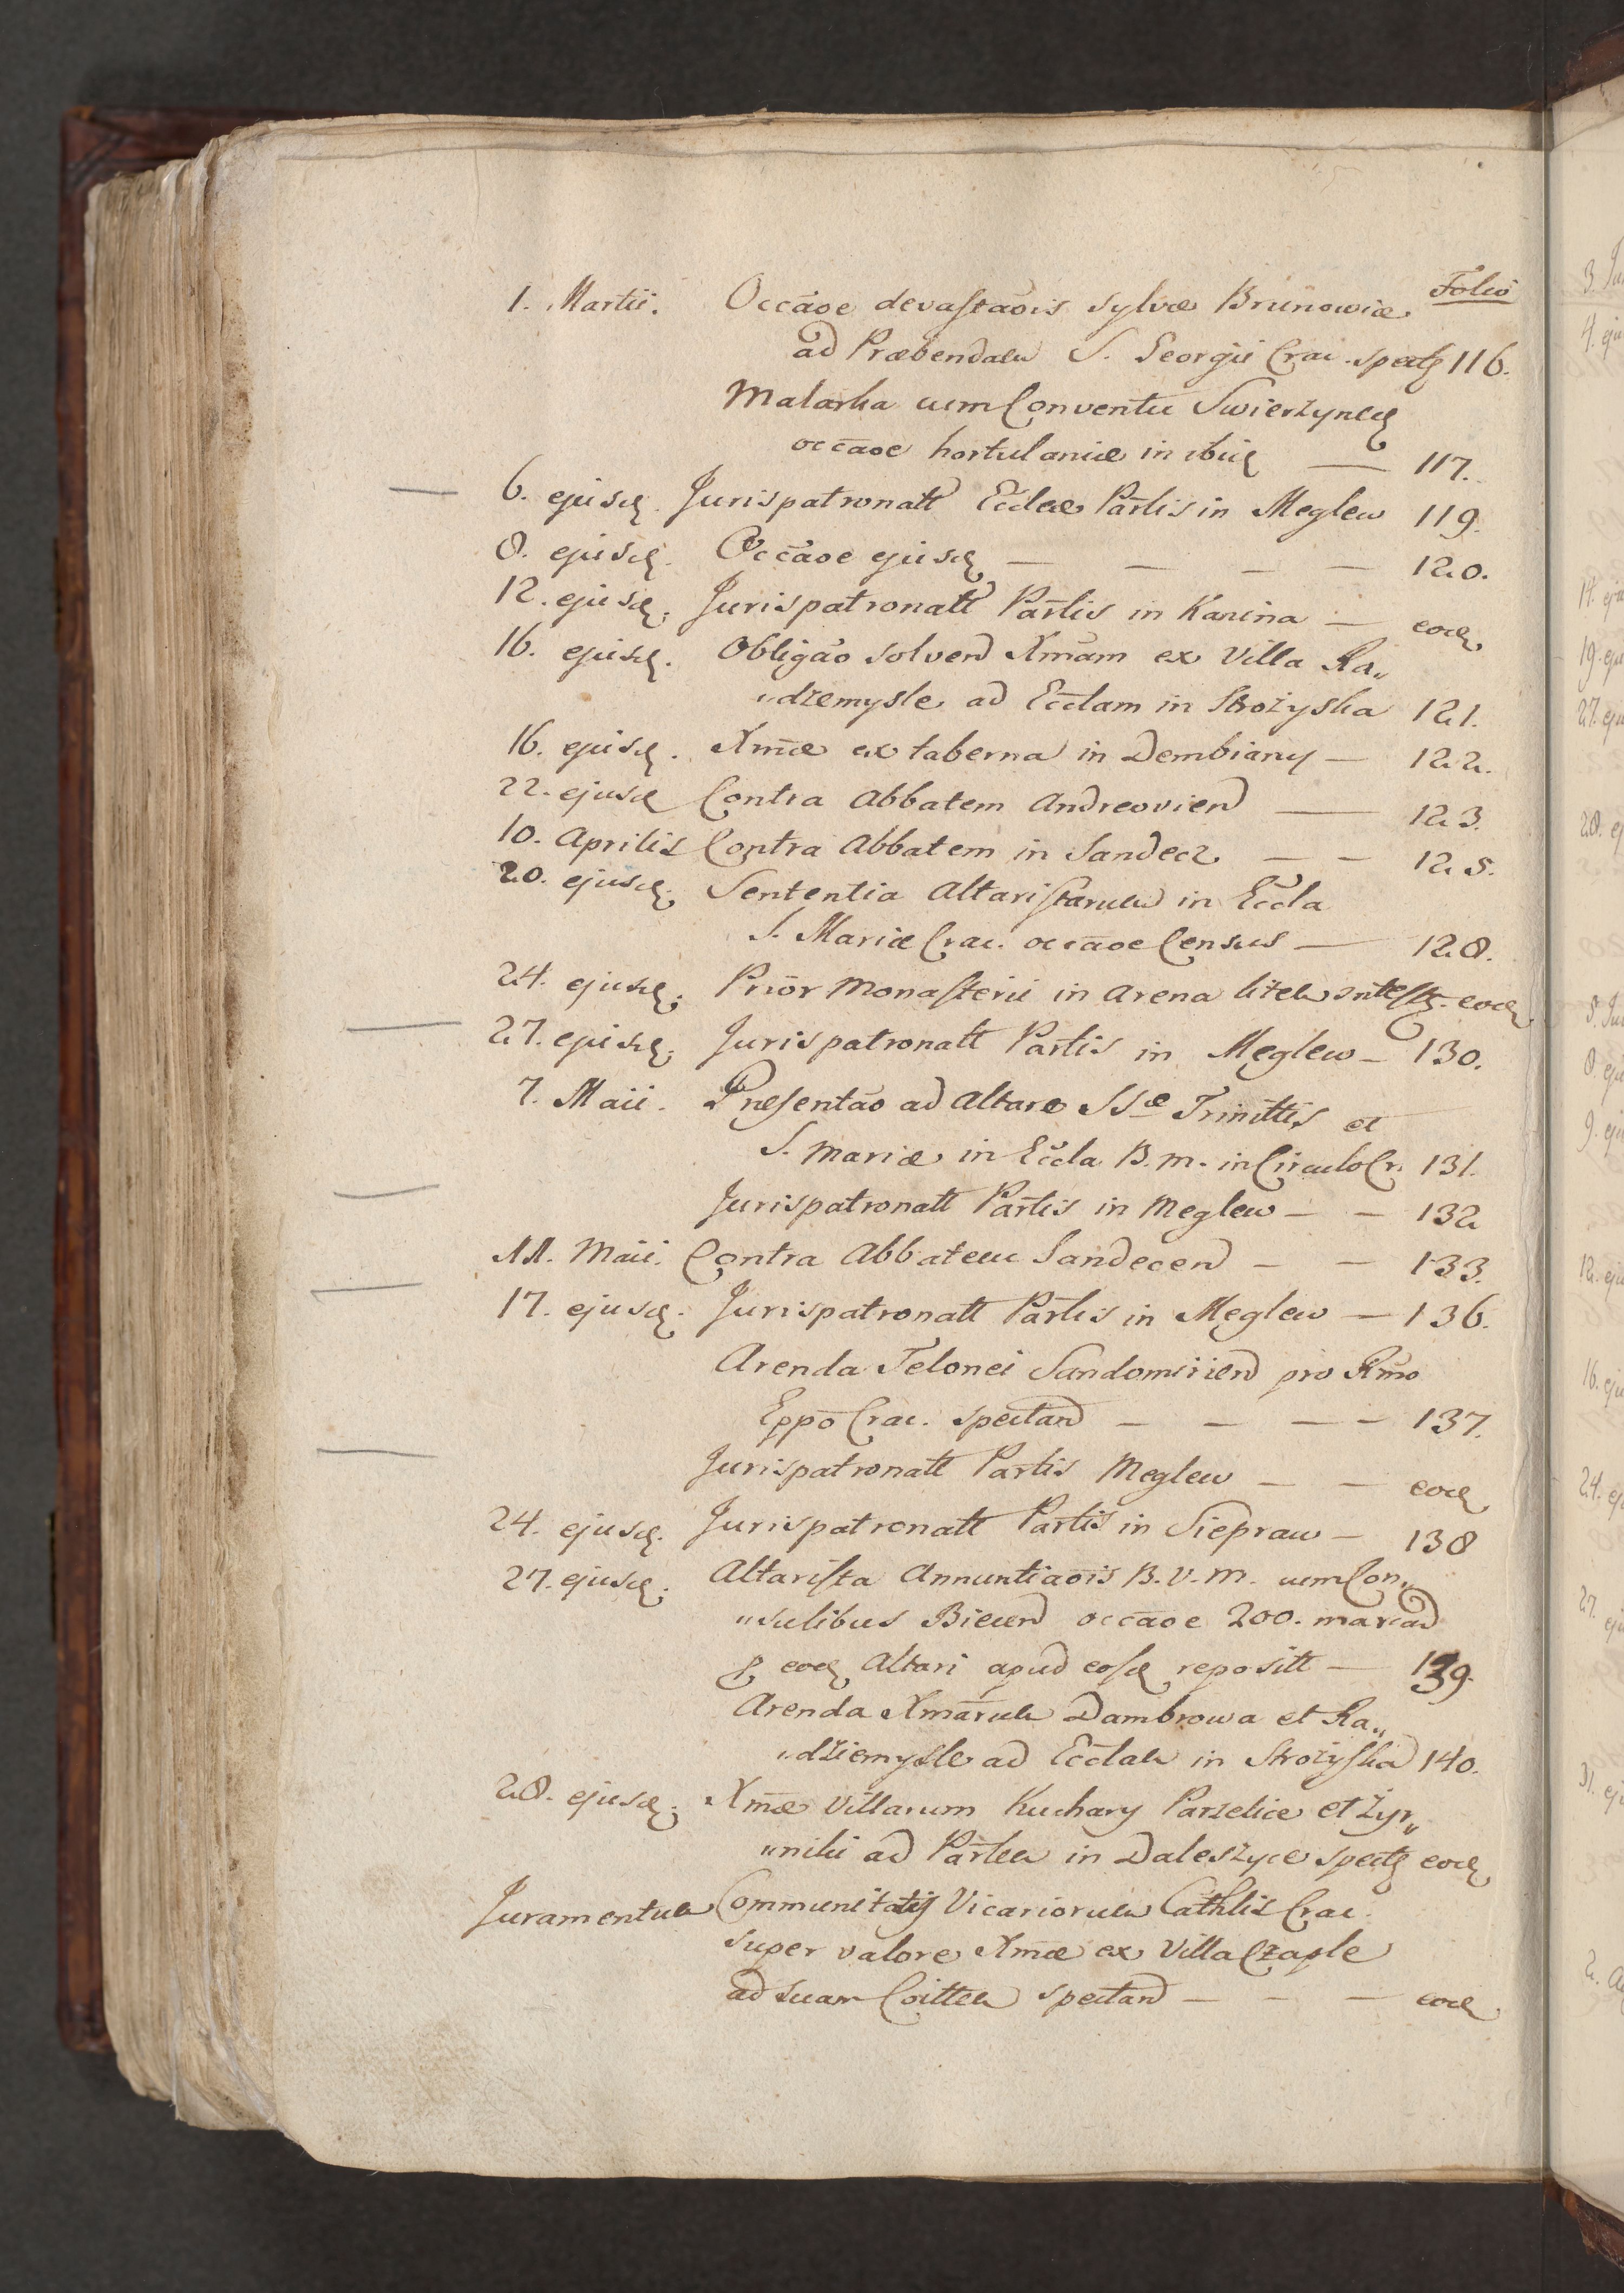 Folio
1. Martii. Occãoe devastaõis sylvæ Brunowiæ
ad Præbendam S. Georgii Crac. spectq 116.
Malarka cum Conventu Swierzyncq
occãoe hortulaniæ in ibiq — 117.
6. ejusdq. Jurispatronatt Ecclæ Partis in Meglew 119.
8. ejusdq. Occãoe ejusdq — — — — 120.
12. ejusdq. Jurispatronatt Partis in Kazina — eodq
16. ejusdq. Obligão solvend Xmam ex Villa Ra„
„dzemysle ad Ecclam in Strozyska 121.
16. ejusdq. Xmæ ex taberna in Dembiany — 122.
22. ejusdq Contra Abbatem Andreovien — 123.
10. Aprilis Contra Abbatem in Sandecz — — 125.
20. ejusdq. Sententia Altaristarum in Eccla
S. Mariæ Crac. occãoe Census — 128.
24. ejusdq. Prior Monasterii in Arena litem eodq
27. ejusdq. Jurispatronatt Partis in Meglew — 130.
7. Maii. Præsentão ad Altare SSæ Trinittis et
S. Mariæ in Eccla B. M. in Circulo Cr. 131.
Jurispatronatt Partis in Meglew — — 132
11. Maii. Contra Abbatem Sandecen — — 133.
17. ejusdq. Jurispatronatt Partis in Meglew — 136.
Arenda Telonei Sandomirien pro Rmo
Eppo Crac. spectand — — — — 137.
Jurispatronatt Partis Meglew — — eodq
24. ejusdq. Jurispatronatt Partis in Siepraw — 138
27. ejusdq. Altarista Annuntiaõis B. V. M. cum Con„
„sulibus Biecen occãoe 200. marcad
p eodq Altari apud eosdq repositt — 139.
Arenda Xmarum Dambrowa et Ra„
„dziemysle ad Ecclam in Strozyska 140.
28. ejusdq. Xmæ Villarum Kuchary Parzelice et Zyr„
„niki ad Partem in Daleszyce spectq eodq
Juramentum Communitatis Vicariorum Cathlis Crac.
super valore Xmæ ex Villa Czaple
ad suam Coittem spectand — — — eodq